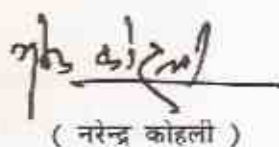 नरेन्द्र कोहली
( नरेन्द्र कोहली )